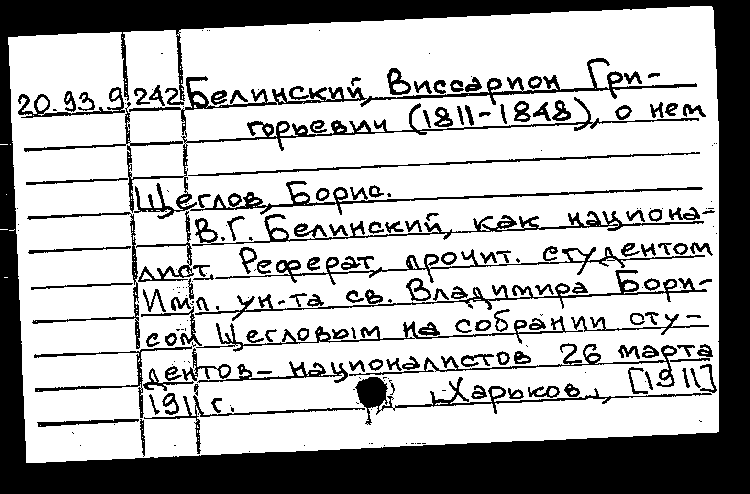 20.93.9 242 Белинский, Виссарион Гри-
горьевич (1811-1848), о нем
Щеглов, Борис.
В.Г. Белинский, как национа-
лист. Реферат, прочит. студентом
Имп. ун-та св. Владимира Бори-
сом Щегловым на собрании сту-
дентов-националистов 26 марта
1911 г. Харьков, [1911]